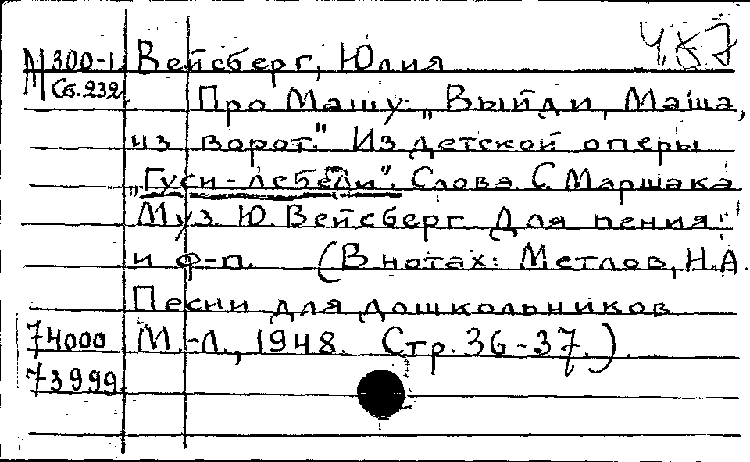 М 300-1 Вейсберг, Юлия
Сб. 232 Про Машу: „Выйди, Маша,
из ворот." Из детской оперы
„Гуси-лебеди". Слова С. Маршака
Муз. Ю. Вейсберг. Для пения
и ф-п. (В нотах: Метлов, Н.А.
Песни для дошкольников
74000 М.-Л., 1948. Стр. 36-37.)
73999